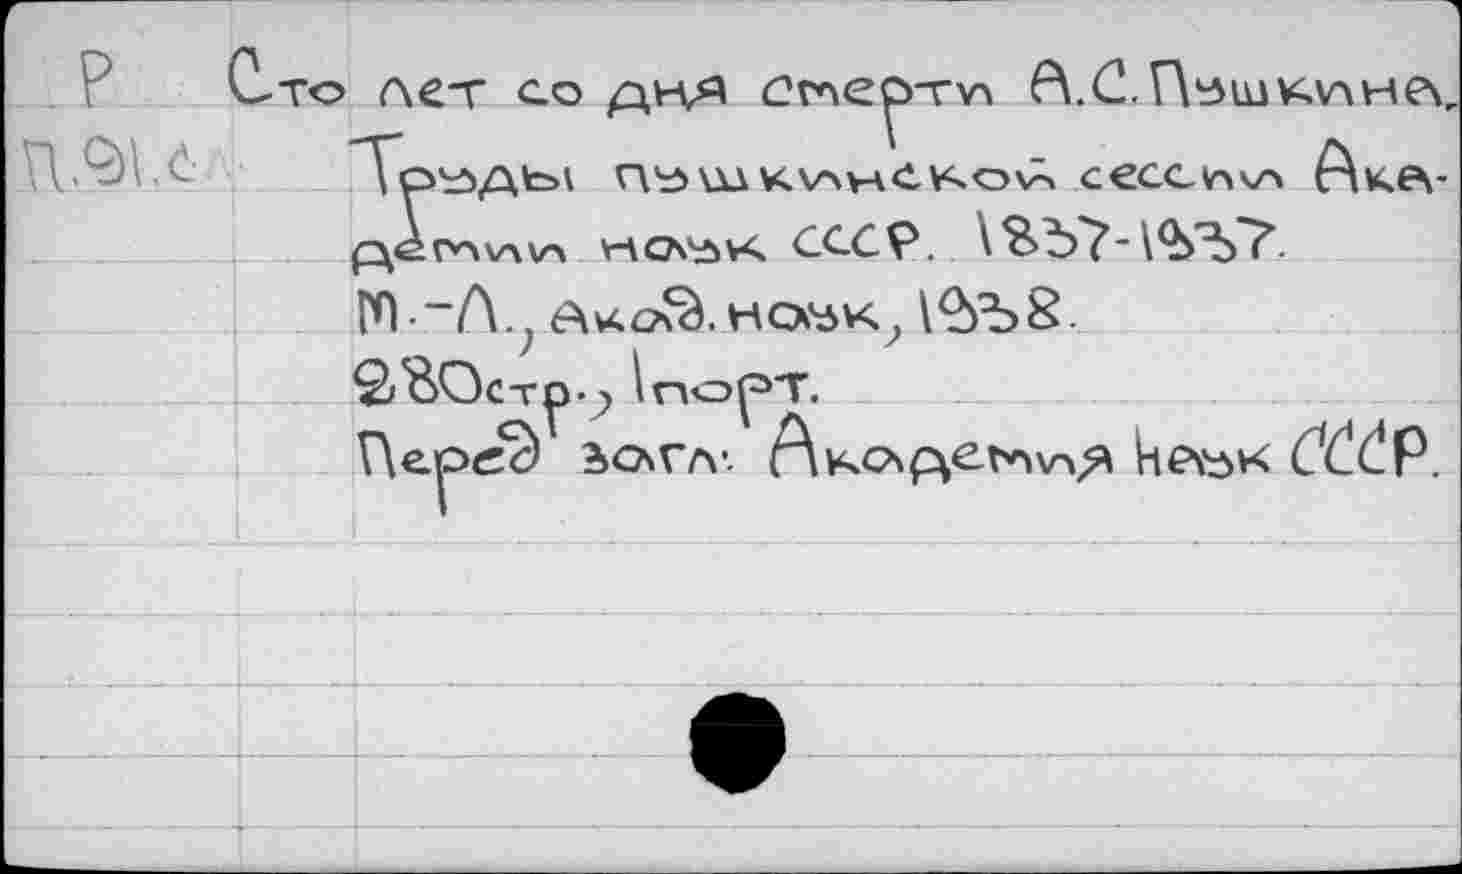 Р Сто лет со дня смерти А.С.Пушкина.
П.91.с Труды пушкинской сессии Ака-
демии наук СССР. 1837-1937.
М.-Л., Акад. наук, 1938.
280стр., 1порт.
Перед загл: Академия наук СССР.